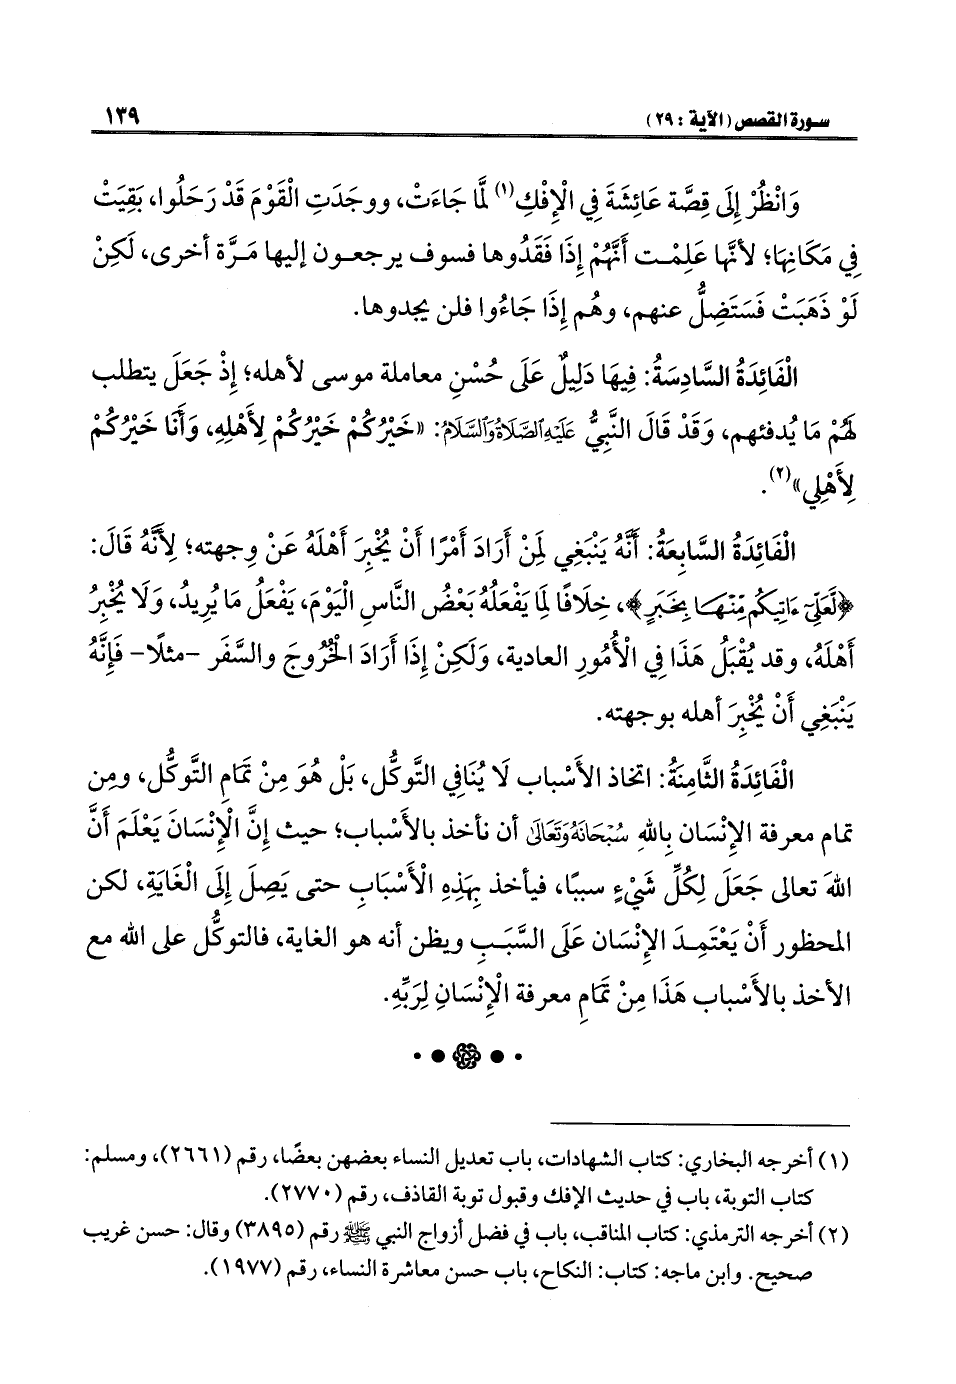 سورة القصص (الآية: ٢٩)
١٣٩
وَانْظُرْ إِلَى قِصَّة عَائِشَةَ فِي الْإِفْكِ(١) لَمَّا جَاءَتْ، ووجَدَتِ الْقَوْمَ قَدْ رَحَلُوا، بَقِيَتْ
فِي مَكَانِهَا؛ لأنَّها عَلِمْت أَنَّهُمْ إِذَا فَقَدُوها فسوف يرجعون إليها مَرَّة أخرى، لَكِنْ
لَوْ ذَهَبَتْ فَسَتَضِلُّ عنهم، وهُم إِذَا جَاءُوا فلن يجدوها.
الْفَائِدَةُ السَّادِسَةُ: فِيهَا دَلِيلٌ عَلَى حُسْنِ معاملة موسى لأهله؛ إِذْ جَعَلَ يتطلب
لَهُمْ مَا يُدفئهم، وَقَدْ قَالَ النَّبِيُّ عَلَيْهِ الصَّلَاةُ وَالسَّلَامُ: «خَيْرُكُمْ خَيْرُكُمْ لِأَهْلِهِ، وَأَنَا خَيْرُكُمْ
لِأَهْلِي»(٢).
الْفَائِدَةُ السَّابِعَةُ: أَنَّهُ يَنْبَغِي لِمَنْ أَرَادَ أَمْرًا أَنْ يُخْبِرَ أَهْلَهُ عَنْ وِجهته؛ لِأَنَّهُ قَالَ:
﴿لَّعَلِّيٓ ءَاتِيكُم مِّنْهَا بِخَبَرٍ﴾، خِلَافًا لِمَا يَفْعَلُهُ بَعْضُ النَّاسِ الْيَوْمَ، يَفْعَلُ مَا يُرِيدُ، وَلَا يُخْبِرُ
أَهْلَهُ، وقد يُقْبَلُ هَذَا فِي الْأُمُورِ العادية، وَلَكِنْ إِذَا أَرَادَ الْخُرُوجَ والسَّفَر -مثلًا- فَإِنَّهُ
يَنْبَغِي أَنْ يُخْبِرَ أهله بوجهته.
الْفَائِدَةُ الثَّامِنَةُ: اتخاذ الأَسْباب لَا يُنَافِي التَّوكُّل، بَلْ هُوَ مِنْ تَمَامِ التَّوكُّل، ومِن
تمام معرفة الإِنْسَان بِاللهِ سُبْحَانَهُ وَتَعَالَى أن نأخذ بالأَسْباب؛ حيث إِنَّ الْإِنْسَانَ يَعْلَمَ أَنَّ
اللهَ تعالى جَعَلَ لِكُلِّ شَيْءٍ سببًا، فيأخذ بِهَذِهِ الْأَسْبَابِ حتى يَصِلَ إِلَى الْغَايَةِ، لكن
المحظور أَنْ يَعْتَمِدَ الإِنْسَان عَلَى السَّبَبِ ويظن أنه هو الغاية، فالتوكُّل على الله مع
الأخذ بالأَسْباب هَذَا مِنْ تَمَامِ معرفة الْإِنْسَانِ لِرَبِّهِ.
(١) أخرجه البخاري: كتاب الشهادات، باب تعديل النساء بعضهن بعضًا، رقم (٢٦٦١)، ومسلم:
كتاب التوبة، باب في حديث الإفك وقبول توبة القاذف، رقم (٢٧٧٠).
(٢) أخرجه الترمذي: كتاب المناقب، باب في فضل أزواج النبي ﷺ رقم (٣٨٩٥) وقال: حسن غريب
صحيح. وابن ماجه: كتاب: النكاح، باب حسن معاشرة النساء، رقم (١٩٧٧).